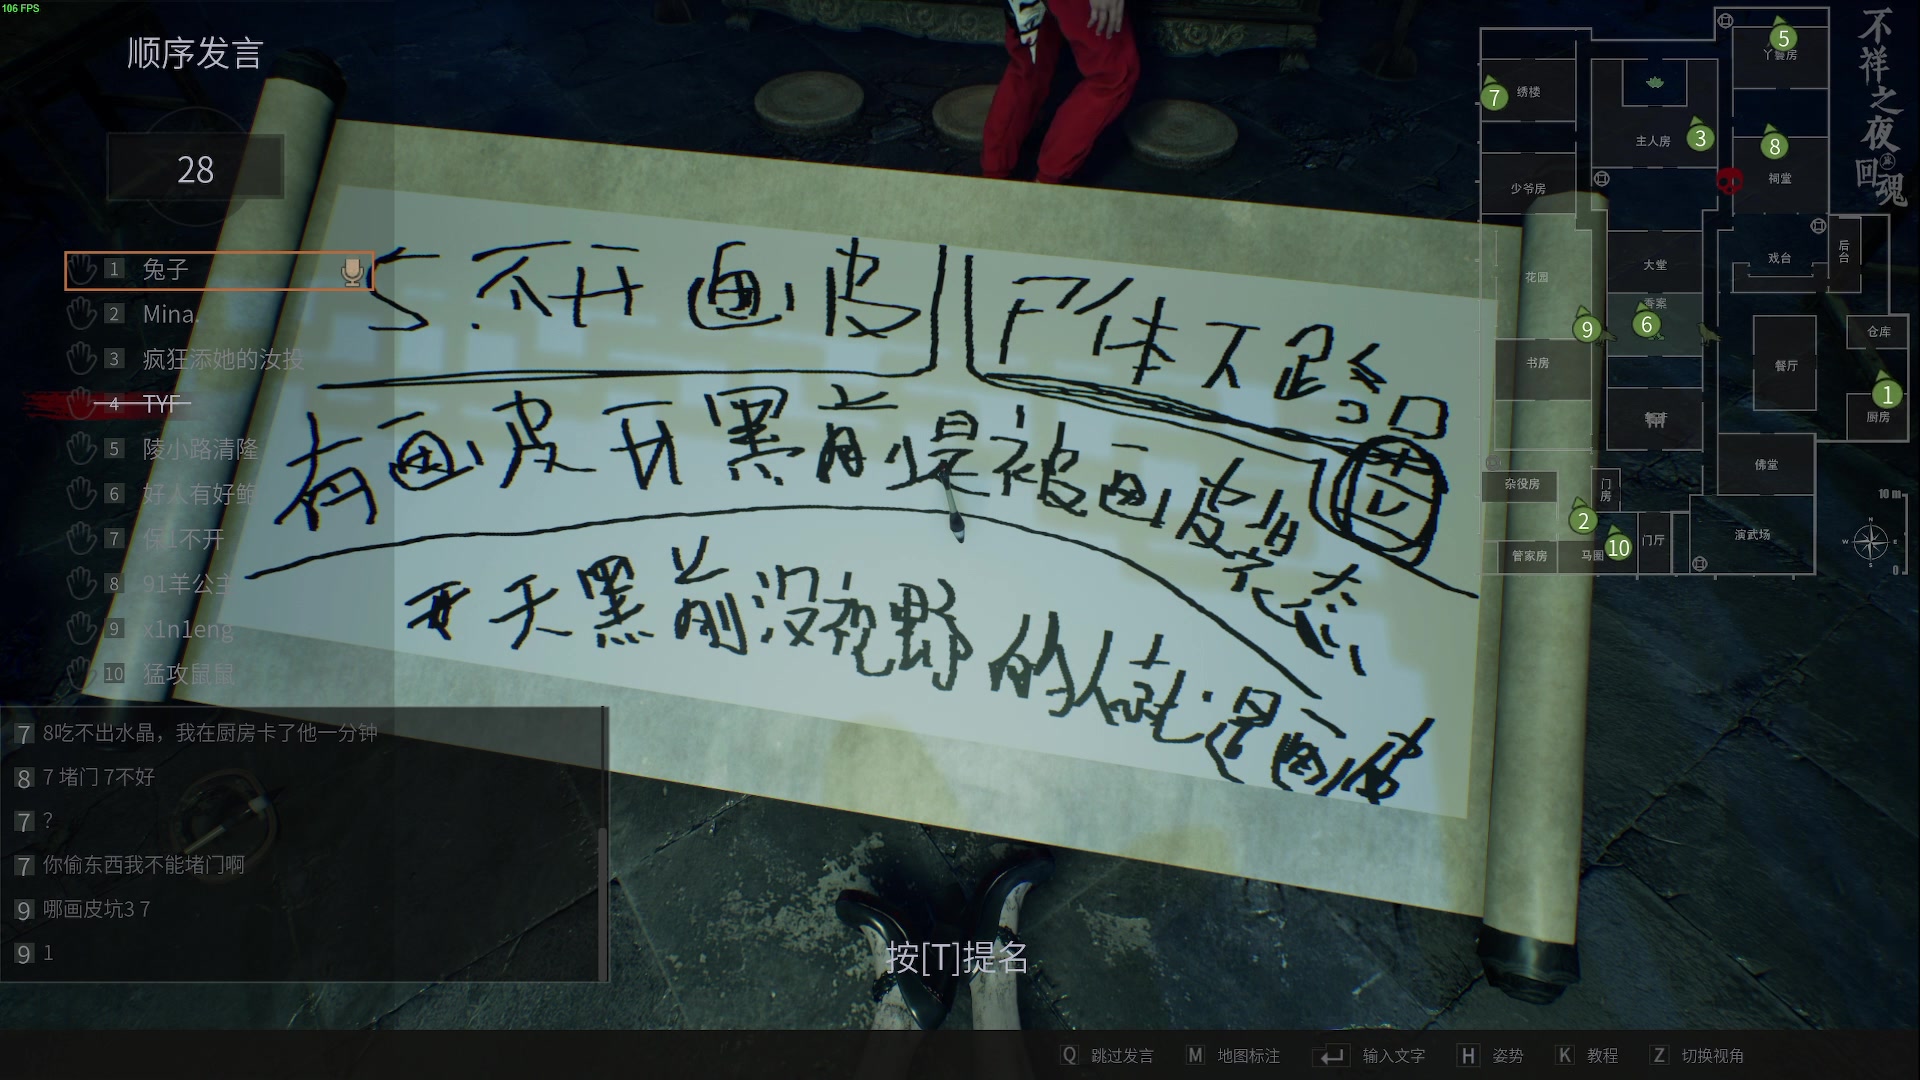 106 FPS
顺序发言
28
1 兔子
2 Mina.
3 疯狂添她的汝投
4 TYF
5 陵小路清隆
6 好人有好鲍
7 保1不开
8 91羊公主
9 x1n1eng
10 猛攻鼠鼠
5.不开画皮
尸体不路口
有画皮开黑前是被画皮皆
状态
开天黑前没视野的人就是画皮
7 8吃不出水晶，我在厨房卡了他一分钟
8 7 堵门 7不好
7 ?
7 你偷东西我不能堵门啊
9 哪画皮坑3 7
9 1
按[T]提名
不祥之夜
回魂
5
丫鬟房
7 绣楼
主人房 3
8
祠堂
少爷房
花园
大堂
戏台
后台
香案
9
6
仓库
书房
餐厅
1
厨房
佛堂
杂役房
门房
2
10
管家房
马圈
门厅
演武场
10 m
0
N
W
E
S
Q 跳过发言 M 地图标注 输入文字 H 姿势 K 教程 Z 切换视角